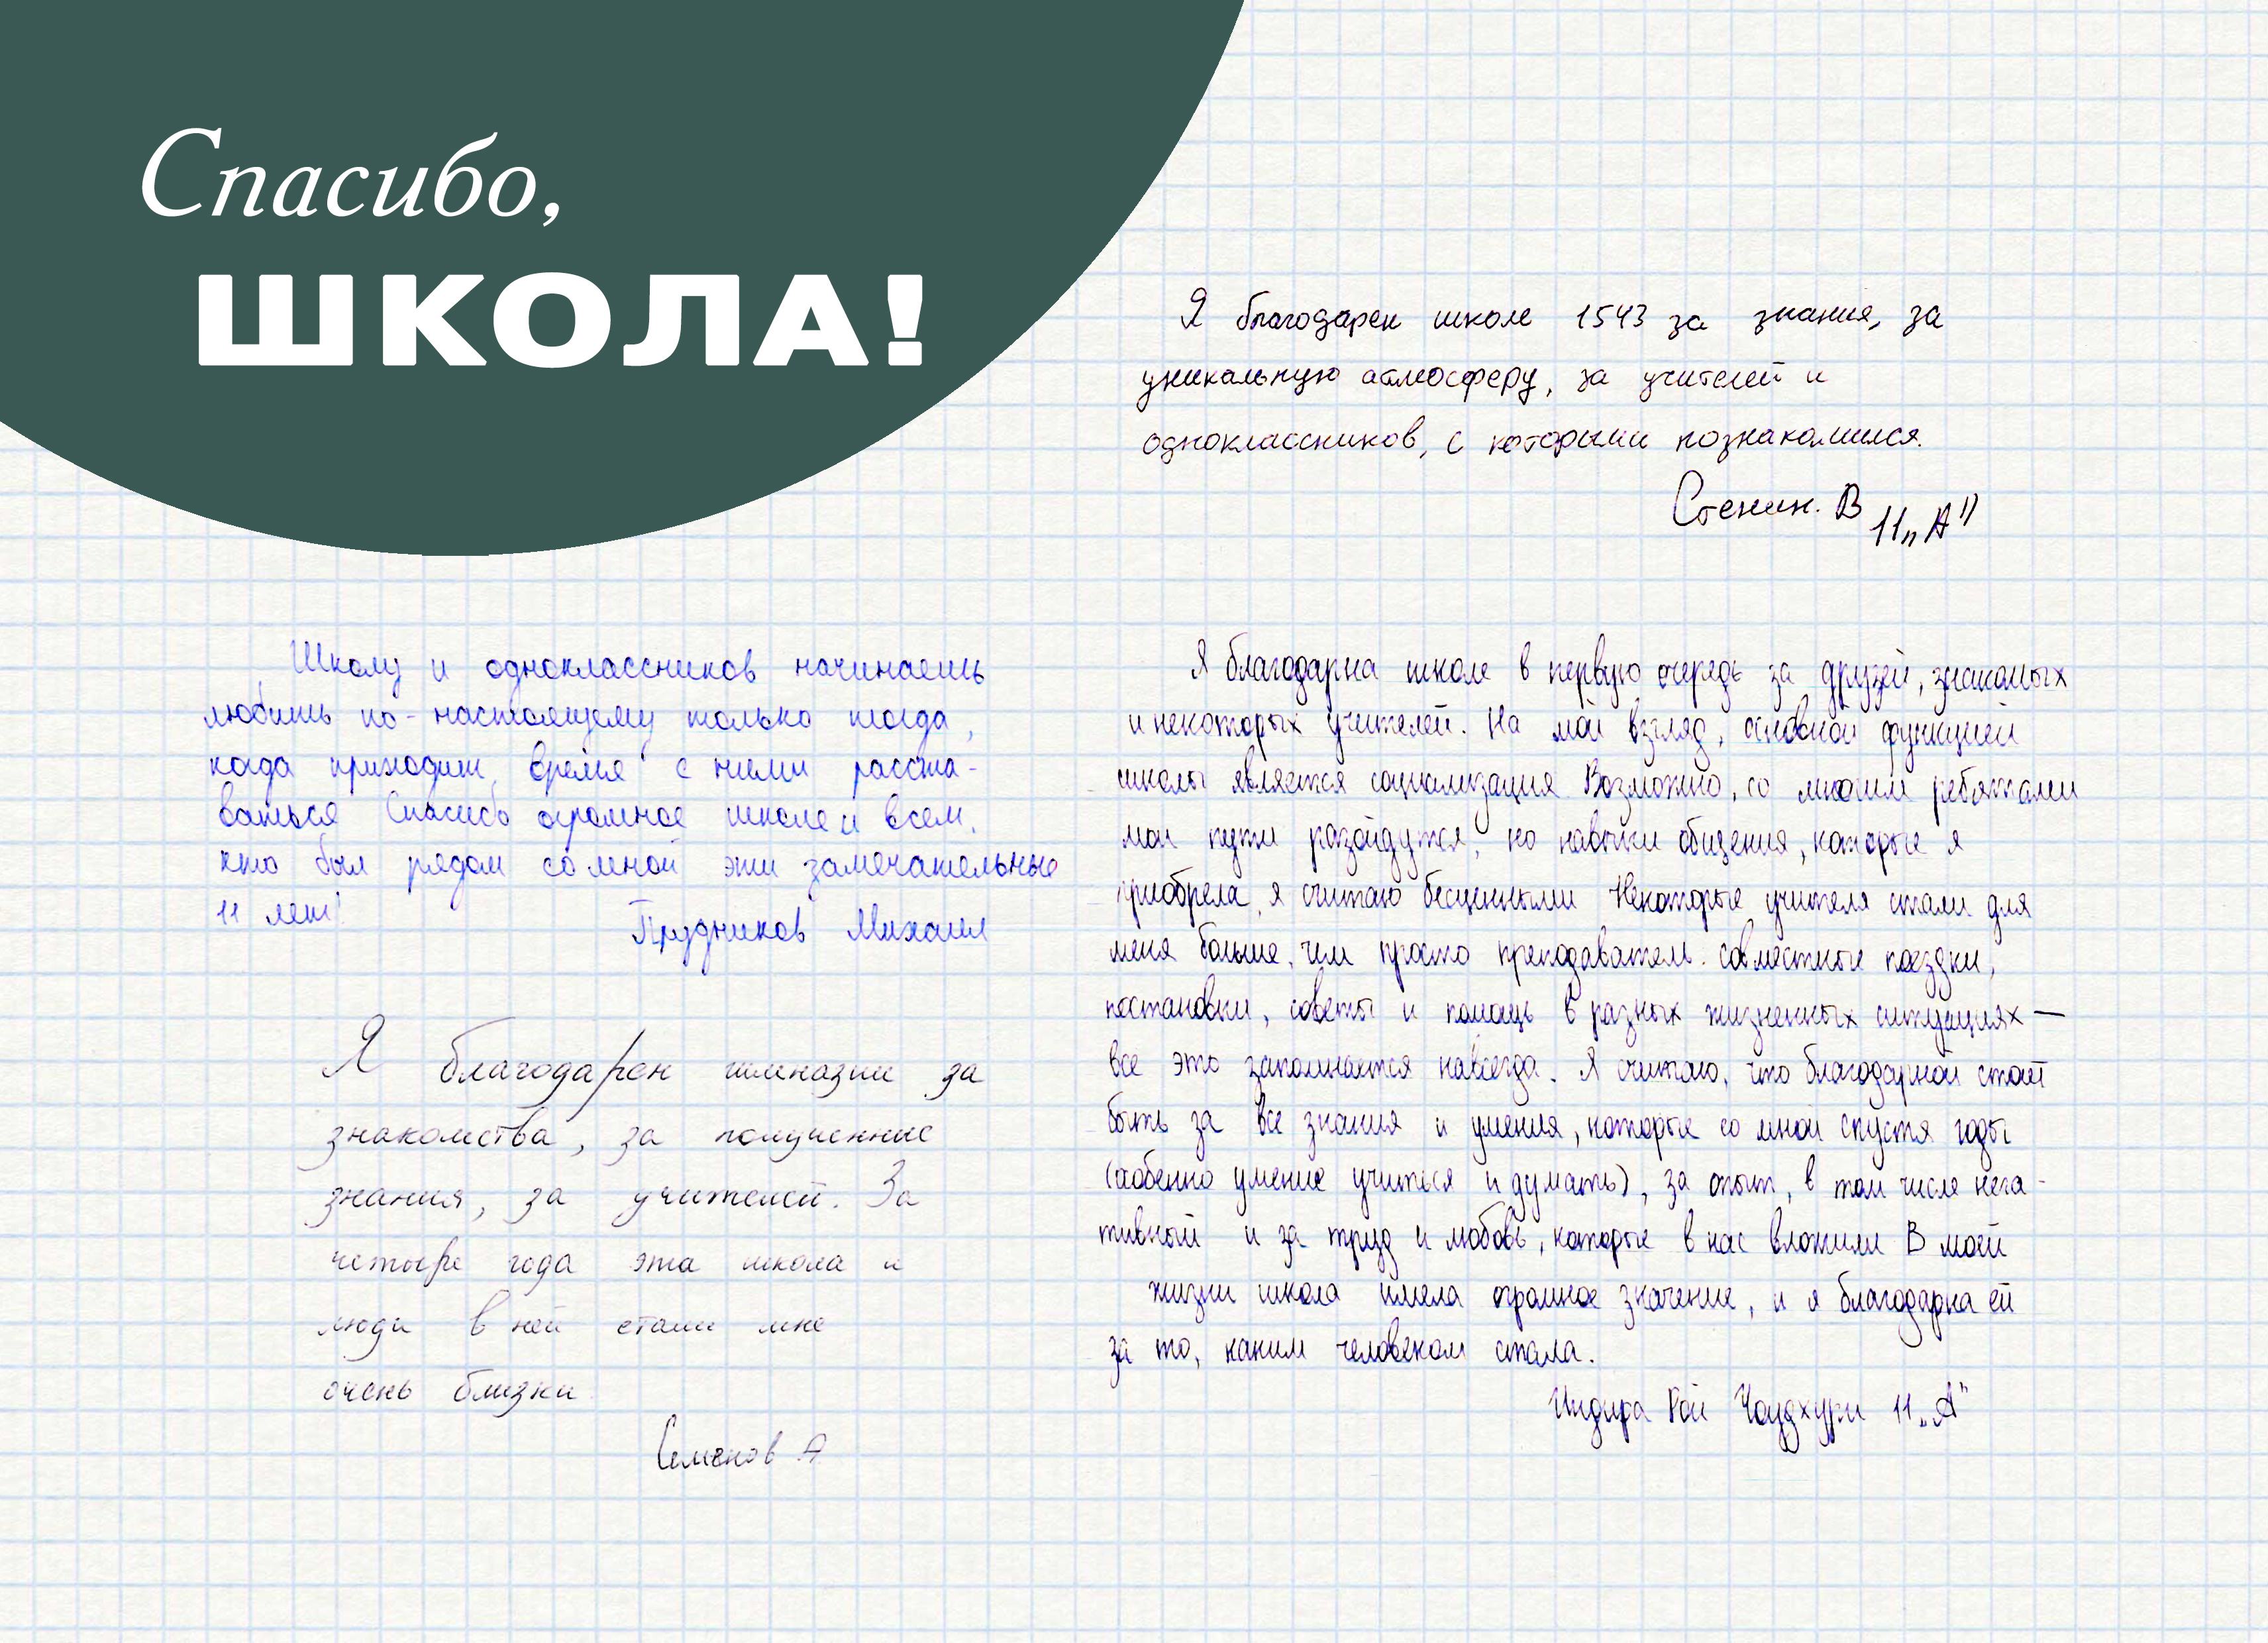 Спасибо,
ШКОЛА!
Я благодарен школе 1543 за знания, за
уникальную атмосферу, за учителей и
одноклассников, с которыми познакомился.
Стенин. В 11„А"
Школу и одноклассников начинаешь
любить по-настоящему только тогда,
когда приходит время с ними расста-
ваться Спасибо огромное школе и всем,
кто был рядом со мной эти замечательные
11 лет!
Прудников Михаил
Я благодарен гимназии за
знакомства, за полученные
знания, за учителей. За
четыре года эта школа и
люди в ней стали мне
очень близки.
Семенов А
Я благодарна школе в первую очередь за друзей, знакомых
и некоторых учителей. На мой взгляд, основной функцией
школы является социализация Возможно, со многими ребятами
мои пути разойдутся, но навыки общения, которые я
приобрела, я считаю бесценными Некоторые учителя стали для
меня больше, чем просто преподаватели. совместные поездки,
постановки, советы и помощь в разных жизненных ситуациях —
все это запоминается навсегда. Я считаю, что благодарной стоит
быть за все знания и умения, которые со мной спустя годы
(особенно умение учиться и думать), за опыт, в том числе нега-
тивный и за труд и любовь, которые в нас вложили В моей
жизни школа имела огромное значение, и я благодарна ей
за то, каким человеком стала.
Индира Рой Чоудхури 11„А"